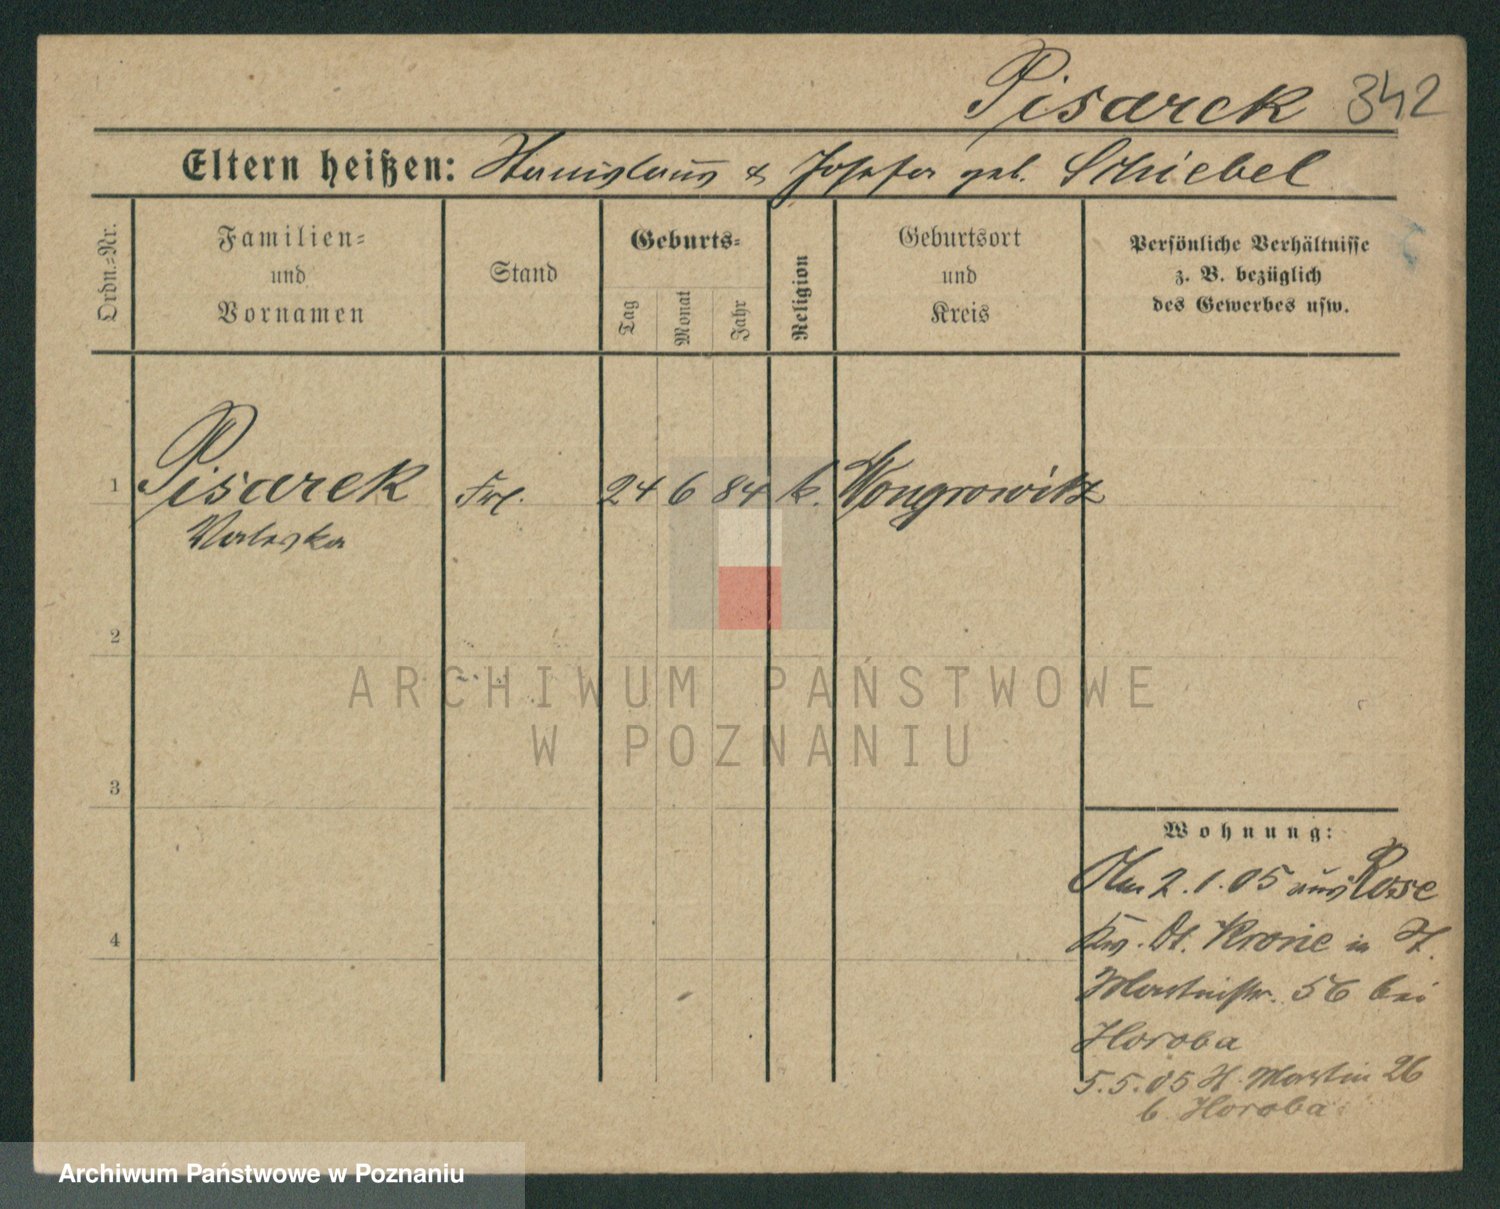 Pisarek 342
Eltern heißen: Stanislaus & Josefa geb. Schiebel
Ordn.-Nr.
Familien- und Vornamen
Stand
Geburts-
Tag
Monat
Jahr
Religion
Geburtsort und Kreis
Persönliche Verhältnisse
z. B. bezüglich
des Gewerbes usw.
1 Pisarek Frl. 24 6 84 k. Wongrowitz
Valeska
2
ARCHIWUM PAŃSTWOWE
W POZNANIU
3
4
Wohnung:
2.1.05 aus Rose
Krs. Dt. Krone in St.
Martinstr. 56 bei
Horoba
5.5.05 St. Martin 26
b. Horoba
Archiwum Państwowe w Poznaniu